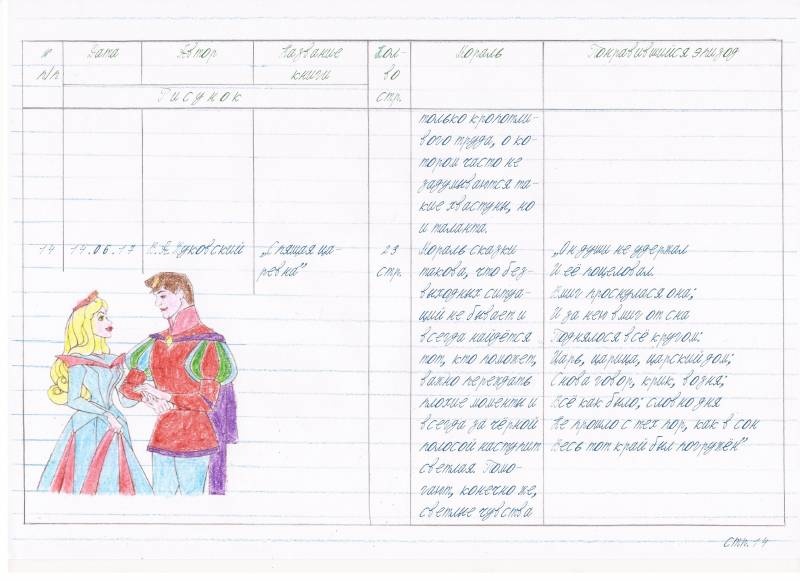 № п/п Дата Автор Название книги Кол-во стр. Мораль Понравившийся эпизод
Рисунок
только кропотли-
вого труда, о ко-
тором часто не
задумываются та-
кие хвастуны, но
и таланта.
14 14.06.17 В.А.Жуковский „Спящая ца-
ревна” 23
стр.
Мораль сказки
такова, что без-
выходных ситуа-
ций не бывает и
всегда найдётся
тот, кто поможет,
важно переждать
плохие моменты и
всегда за чёрной
полосой наступит
светлая. Помо-
гают, конечно же,
светлые чувства
„Он души не удержал
И её поцеловал.
Вмиг проснулася она;
И за нею вмиг от сна
Поднялося всё кругом:
Царь, царица, царский дом;
Снова говор, крик, возня;
Всё как было; словно дня
Не прошло с тех пор, как в сон
Весь тот край был погружён”
стр. 14